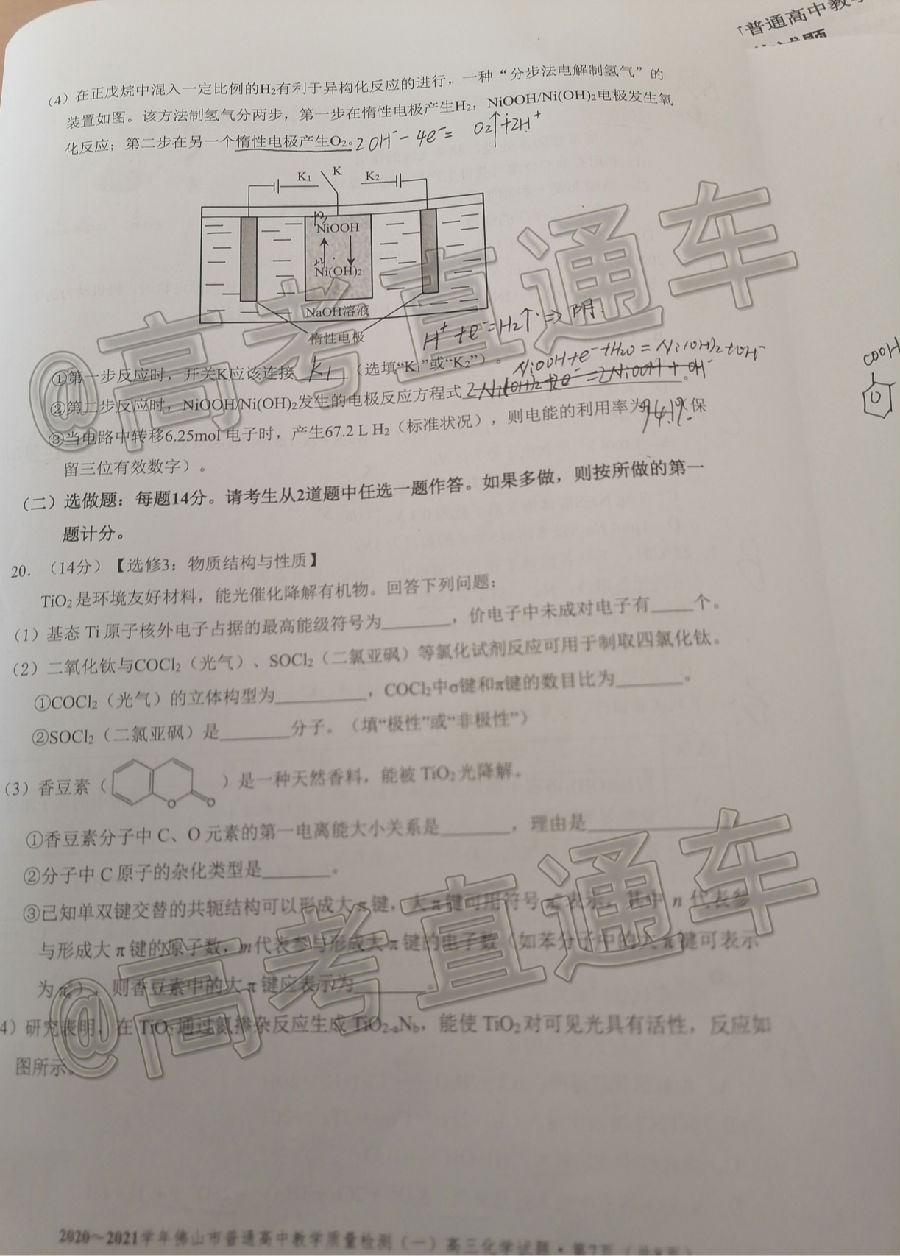 「普通高中教学
(4)在正戊烷中混入一定比例的H₂有利于异构化反应的进行,一种“分步法电解制氢气”的
装置如图。该方法制氢气分两步,第一步在惰性电极产生H₂,NiOOH/Ni(OH)₂电极发生氧
化反应;第二步在另一个惰性电极产生O₂。2OH⁻-4e⁻= O₂↑+2H⁺
K₁ K K₂
NiOOH
Ni(OH)₂
NaOH溶液
惰性电极
H⁺+e⁻=H₂↑⇒阴
①第一步反应时,开关K应该连接 K₁ (选填“K₁”或“K₂”)。
NiOOH+e⁻+H₂O=Ni(OH)₂+OH⁻
②第二步反应时,NiOOH/Ni(OH)₂发生的电极反应方程式
COOH
③当电路中转移6.25mol电子时,产生67.2 L H₂(标准状况),则电能的利用率为 保
留三位有效数字)。
(二)选做题:每题14分。请考生从2道题中任选一题作答。如果多做,则按所做的第一
题计分。
20.(14分)【选修3:物质结构与性质】
TiO₂是环境友好材料,能光催化降解有机物。回答下列问题:
(1)基态Ti原子核外电子占据的最高能级符号为________,价电子中未成对电子有____个。
(2)二氧化钛与COCl₂(光气)、SOCl₂(二氯亚砜)等氯化试剂反应可用于制取四氯化钛。
①COCl₂(光气)的立体构型为________,COCl₂中σ键和π键的数目比为________。
②SOCl₂(二氯亚砜)是________分子。(填“极性”或“非极性”)
(3)香豆素( O O )是一种天然香料,能被TiO₂光降解。
①香豆素分子中C、O元素的第一电离能大小关系是________,理由是____________
②分子中C原子的杂化类型是________。
③已知单双键交替的共轭结构可以形成大π键,大π键可用符号 表示,其中 n 代表参
与形成大π键的原子数,m代表参与形成大π键的电子数(如苯分子中的大π键可表示
为 ),则香豆素中的大π键应表示为________。
4)研究表明,在TiO₂通过氮掺杂反应生成TiO₂₋ₐN_b,能使TiO₂对可见光具有活性,反应如
图所示。
2020~2021学年佛山市普通高中教学质量检测(一)高三化学试题·第7页(共8页)
@高考直通车
@高考直通车